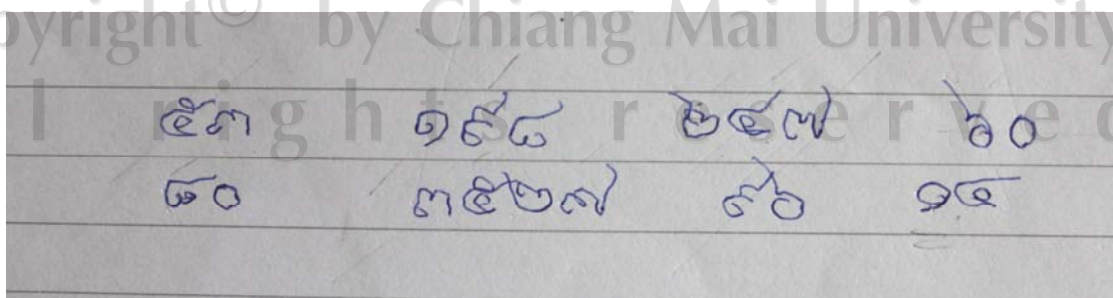 Copyright© by Chiang Mai University
All rights reserved
๕๓ ๑๙๘ ๒๔๗ ๖๐
๘๐ ๓๕๒๗ ๙๖ ๑๔